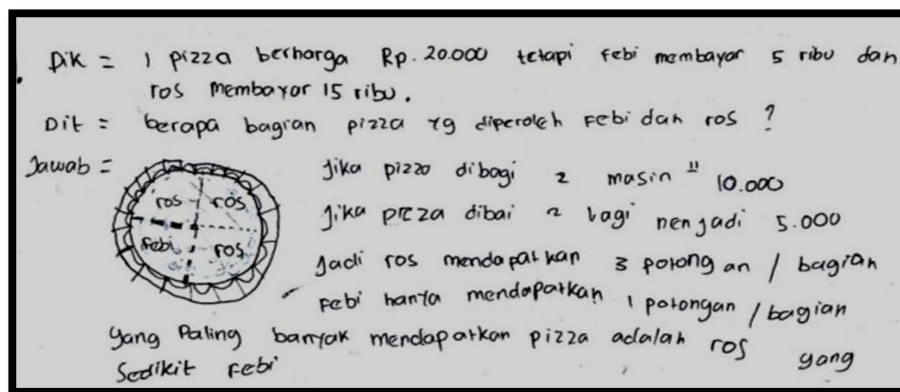 Dik = 1 pizza berharga Rp. 20.000 tetapi febi membayar 5 ribu dan
ros membayar 15 ribu.
Dit = berapa bagian pizza yg diperoleh Febi dan ros ?
Jawab =
ros ros
Febi ros
Jika pizza dibagi 2 masin" 10.000
Jika pizza dibai 2 lagi menjadi 5.000
Jadi ros mendapatkan 3 potong an / bagian
Febi hanya mendapatkan 1 potongan / bagian
yang Paling banyak mendapatkan pizza adalah ros yang
Sedikit Febi